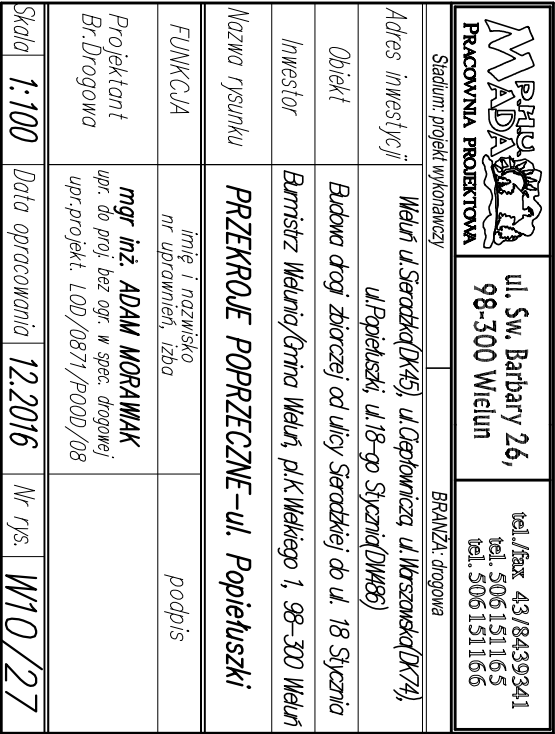 P.H.U.
MADA
PRACOWNIA PROJEKTOWA
ul. Św. Barbary 26,
98-300 Wieluń
tel./fax 43/8439341
tel. 506151165
tel. 506151166
Stadium: projekt wykonawczy
BRANŻA: drogowa
Adres inwestycji
Wieluń ul.Sieradzka(DK45), ul.Ciepłownicza, ul.Warszawska(DK74),
ul.Popiełuszki, ul.18-go Stycznia(DW486)
Obiekt
Budowa drogi zbiorczej od ulicy Sieradzkiej do ul. 18 Stycznia
Inwestor
Burmistrz Wielunia/Gmina Wieluń, pl.K.Wielkiego 1, 98-300 Wieluń
Nazwa rysunku
PRZEKROJE POPRZECZNE-ul. Popiełuszki
FUNKCJA
imię i nazwisko
nr uprawnień, izba
podpis
Projektant
Br.Drogowa
mgr inż ADAM MORAWIAK
upr. do proj. bez ogr. w spec. drogowej
upr.projekt. LOD/0871/POOD/08
Skala
1:100
Data opracowania
12.2016
Nr rys.
W10/27